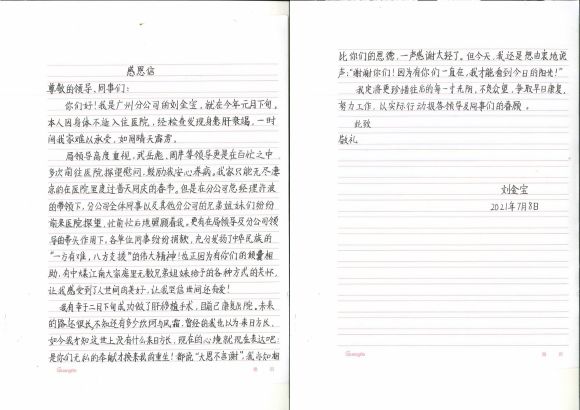 感恩信
尊敬的领导、同事们：
你们好！我是广州分公司的刘金宝，就在今年元月下旬，
本人因身体不适入住医院，经检查发现身患肝衰竭，一时
间我家难以承受，如同晴天霹雳。
局领导高度重视，武岳彪、周率等领导更是在百忙之中
多次前往医院探望慰问，鼓励我安心养病。我家只能无尽凄
凉的在医院里度过普天同庆的春节。但是在分公司总经理许波
的带领下，分公司全体同事以及其他分公司的兄弟姐妹们纷纷
前来医院探望，忙前忙后地照顾着我。更有在局领导及分公司领
导的带头作用下，各单位同事纷纷捐款，充分发扬了中华民族的
“一方有难，八方支援”的伟大精神！也正因为有你们的倾囊相
助，有中煤江南大家庭里无数兄弟姐妹给予的各种方式的关怀，
让我感受到了人世间的美好，让我坚信世间还有爱！
我有幸于二月下旬成功做了肝移植手术，目前已康复出院。未来
的路还很长，不知还有多少坎坷与风霜，曾经的我也以为来日方长，
如今我才知这世上没有什么来日方长，现在的心境就现在表达吧：
是你们无私的奉献才换来我的重生！都说“大恩不言谢”，我亦知相
比你们的恩德，一声感谢太轻了。但今天，我还是想由衷地说
声：“谢谢你们！因为有你们一直在，我才能看到今日的阳光！”
我定将更珍惜往后的每一寸光阴，不负众望，争取早日康复，
努力工作，以实际行动报答领导及同事们的眷顾。
此致
敬礼
刘金宝
2021年7月8日
Guangbo
Guangbo